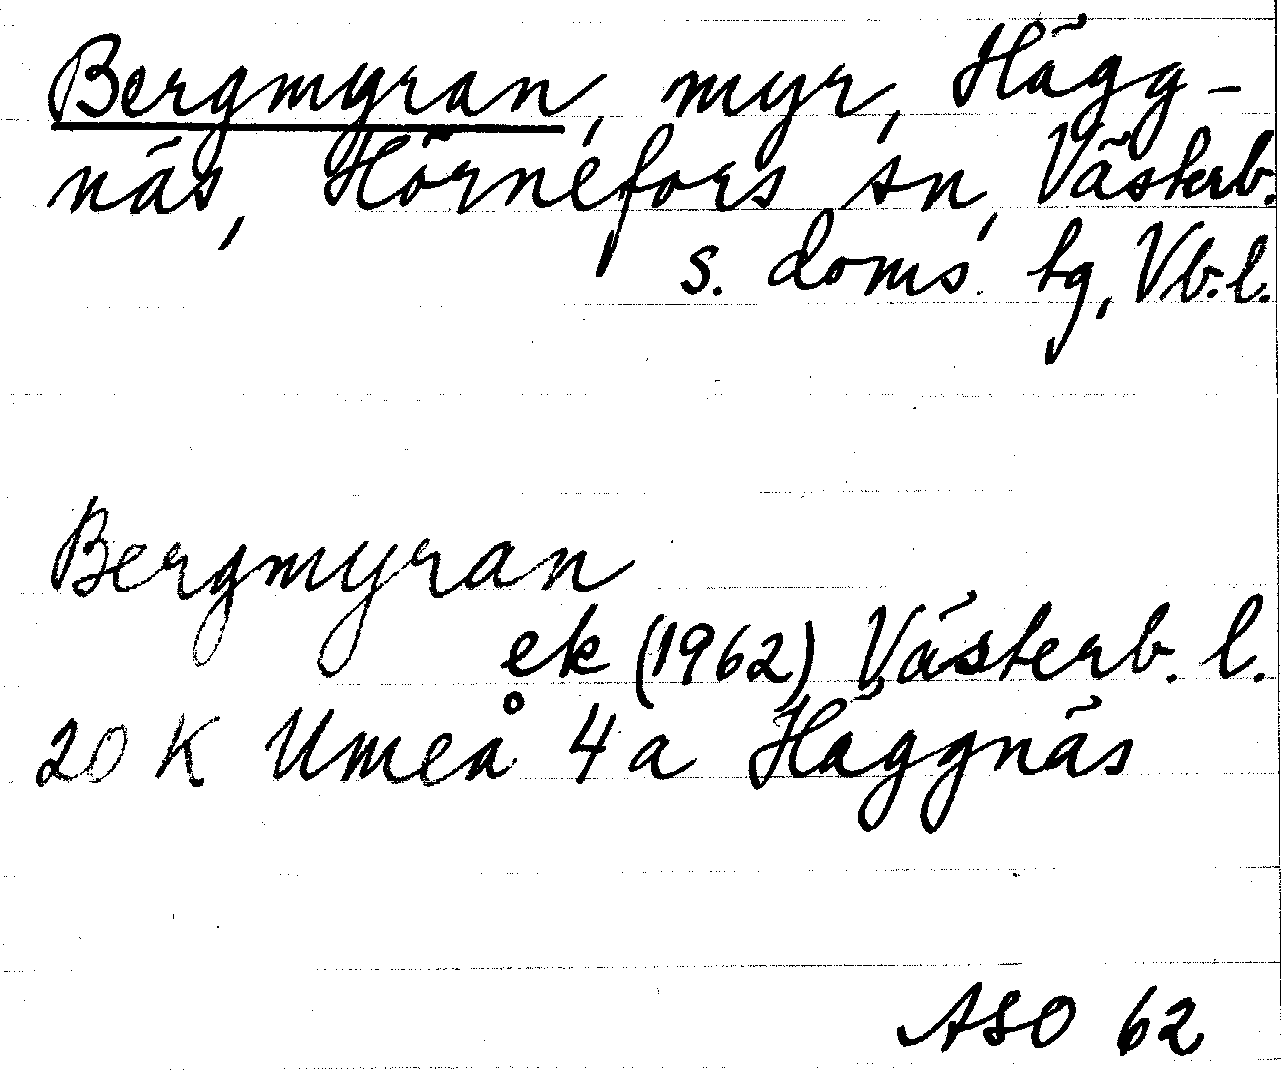 Bergmyran, myr, Hägg-
näs, Hörnefors sn, Västerb.
s. doms. tg, Vb.l.
Bergmyran
ek (1962) Västerb. l.
20 K Umeå 4a Häggnäs
ASO 62